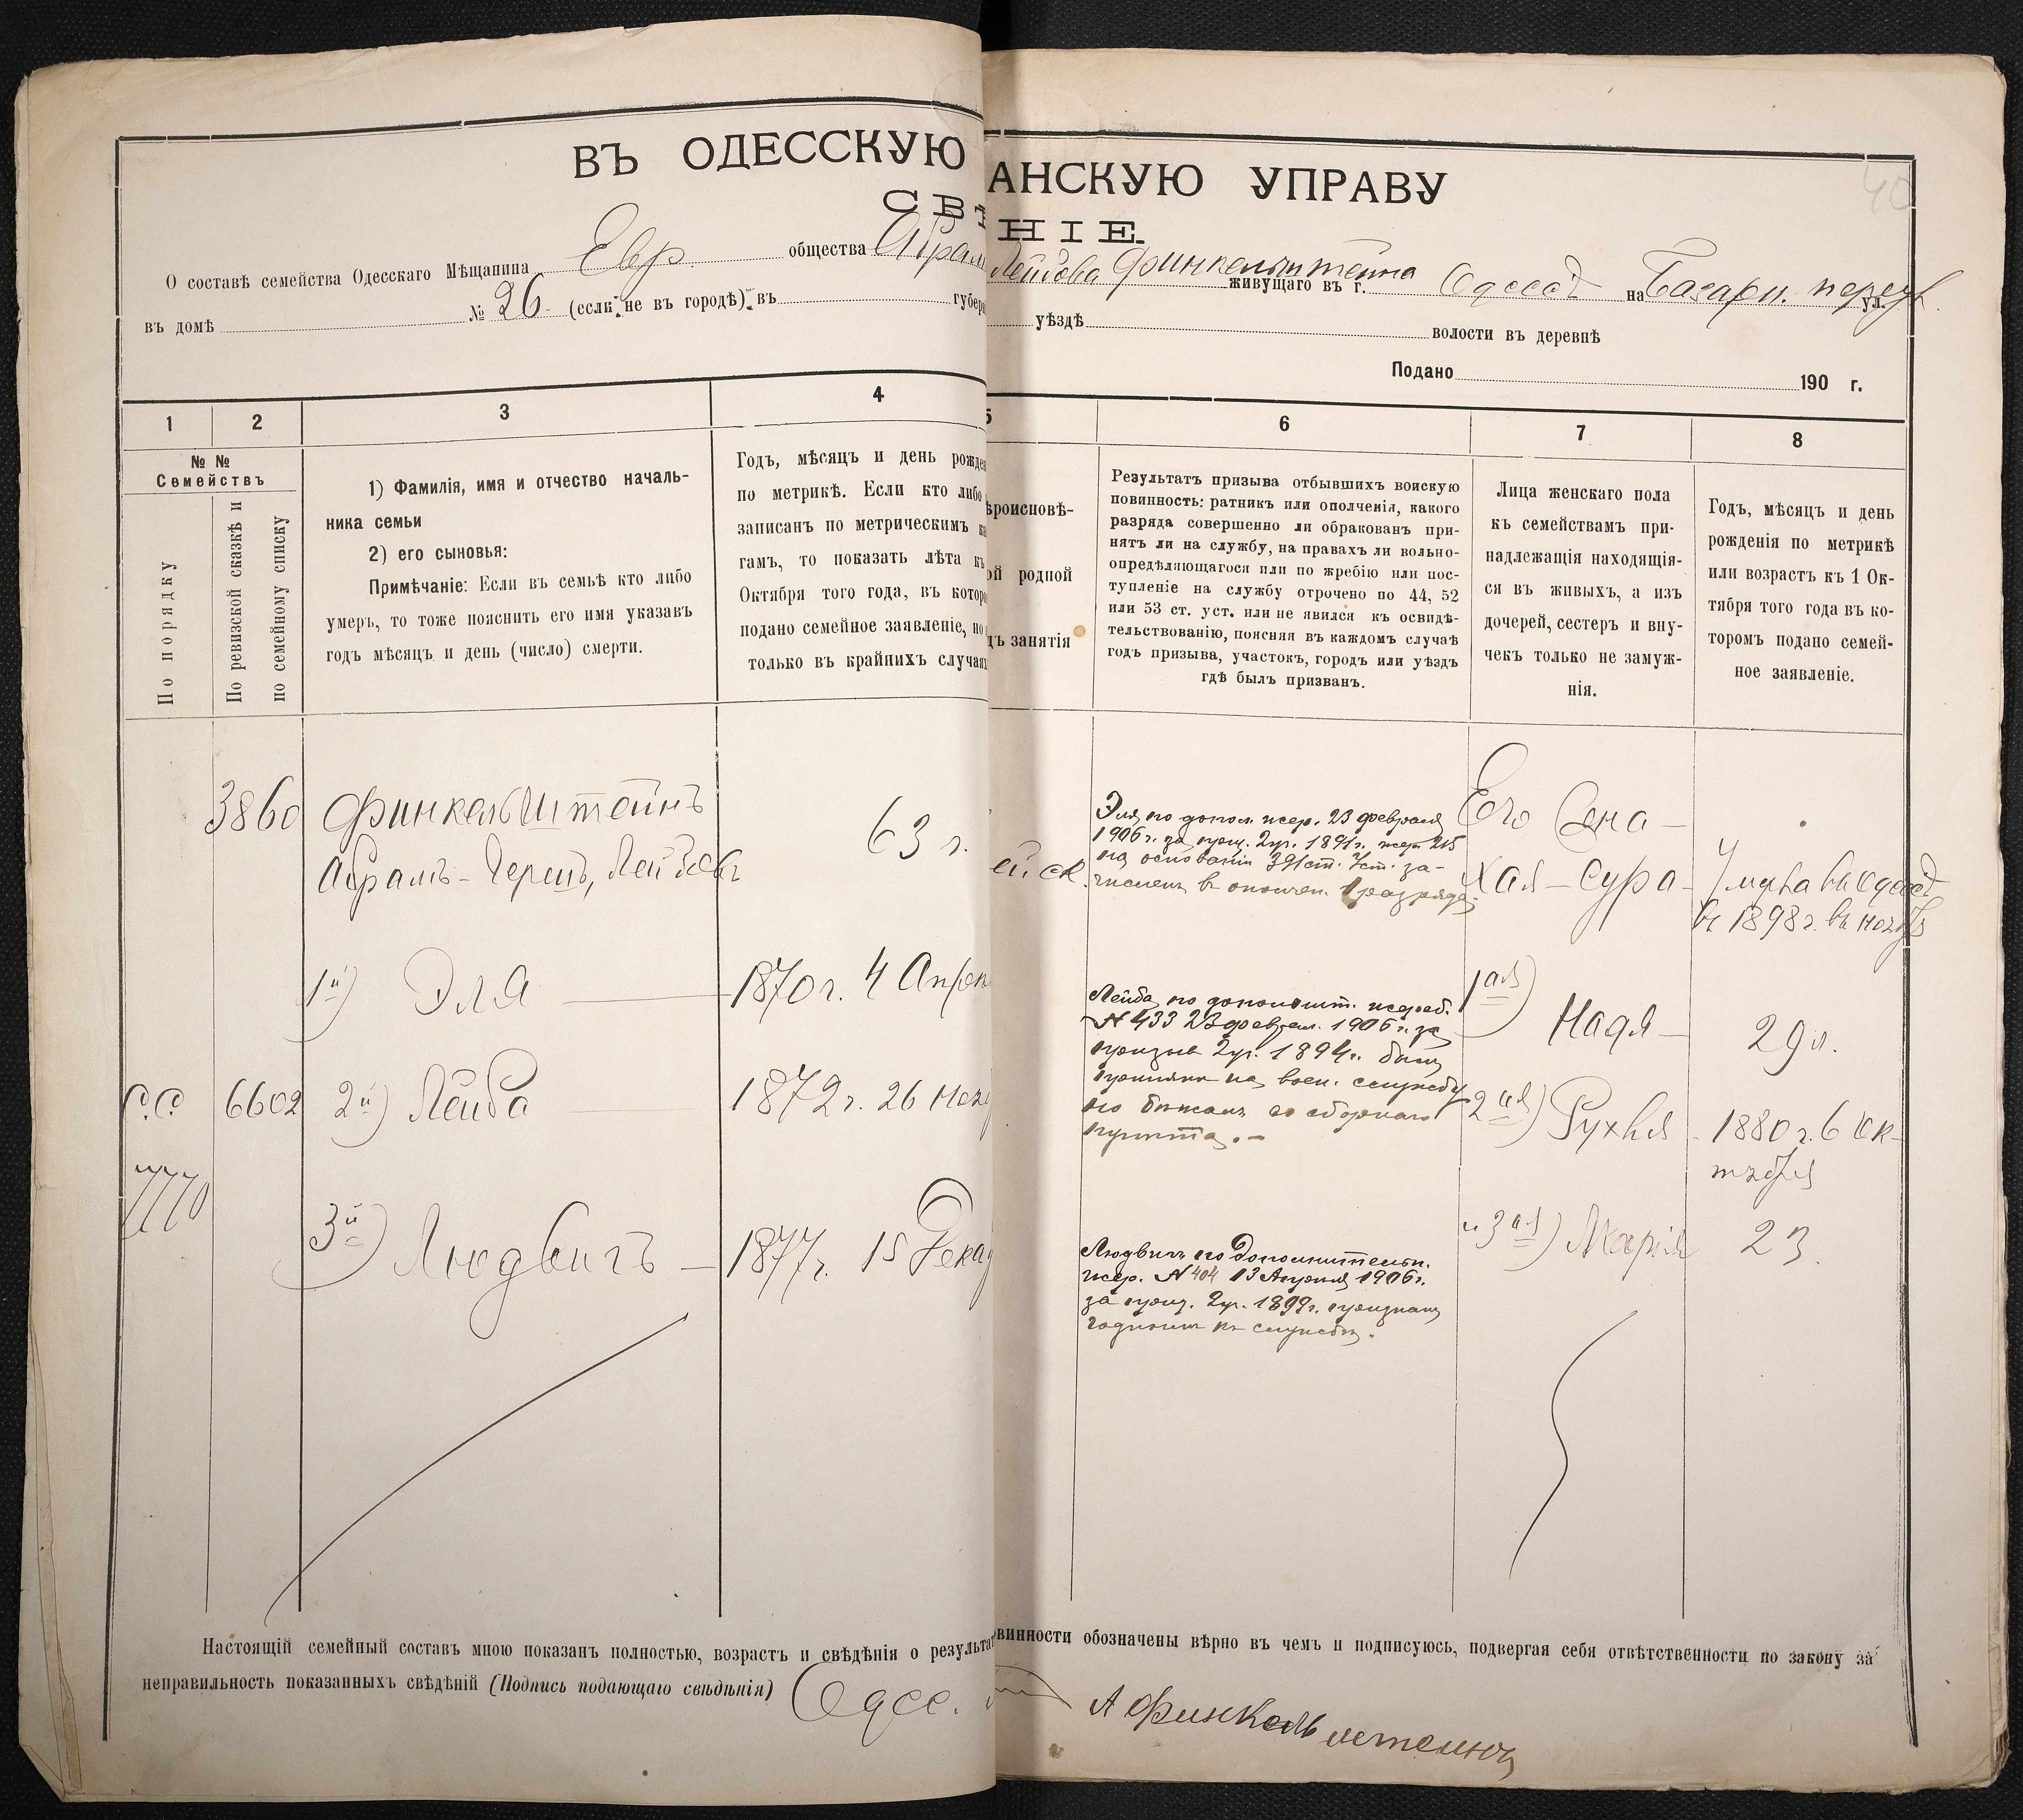 ВЪ ОДЕССКУЮ
АНСКУЮ УПРАВУ
СВѢ
НІЕ.
О составѣ семейства Одесскаго Мѣщанина Евр. общества Абрам
Лейбова Финкельштейна живущаго въ г. Одессѣ на Базарн. переул. ул.
въ домѣ № 26 (если не въ городѣ) въ губер
уѣздѣ волости въ деревнѣ
Подано 190 г.
1
2
3
4
5
6
7
8
№ №
Семействъ
По порядку
По ревизской сказкѣ и
по семейному списку
1) Фамилія, имя и отчество началь-
ника семьи
2) его сыновья:
Примѣчаніе: Если въ семьѣ кто либо
умеръ, то тоже пояснить его имя указавъ
годъ мѣсяцъ и день (число) смерти.
Годъ, мѣсяцъ и день рожде
по метрикѣ. Если кто либо
записанъ по метрическимъ к
гамъ, то показать лѣта къ
Октября того года, въ котор
подано семейное заявленіе, но
только въ крайнихъ случая
ѣроисповѣ-
ой родной
дъ занятія
Результатъ призыва отбывшихъ воискую
повинность: ратникъ или ополченія, какого
разряда совершенно ли обракованъ при-
нятъ ли на службу, на правахъ ли вольно-
опредѣляющагося или по жребію или пос-
тупленіе на службу отрочено по 44, 52
или 53 ст. уст. или не явился къ освидѣ-
тельствованію, поясняя въ каждомъ случаѣ
годъ призыва, участокъ, городъ или уѣздъ
гдѣ былъ призванъ.
Лица женскаго пола
къ семействамъ при-
надлежащія находящія-
ся въ живыхъ, а изъ
дочерей, сестеръ и вну-
чекъ только не замуж-
нія.
Годъ, мѣсяцъ и день
рожденія по метрикѣ
или возрастъ къ 1 Ок-
тября того года въ ко-
торомъ подано семей-
ное заявленіе.
3860 Финкельштейнъ
Абрамъ-Гершъ, Лейбовъ
63 г.
ейск.
Эля по допол. жер. 23 февраля
1906 г. за приз. 2 уч. 1891 г. жер. 215
на основаніи 391 ст. Уст. за-
численъ в ополчен. 1 разряда.
Его жена -
Хая-Сура -
Умерла въ Одессѣ
въ 1898 г. въ ноябрѣ
1й) Эля
1870 г. 4 Апрѣл
Лейба по дополнит. жереб.
№ 433 23 феврал. 1906 г. за
призыв 2 уч. 1894 г. былъ
принятъ на воен. службу
но бѣжалъ со сборнаго
пункта. -
1ая) Надя -
29 л.
С.С. 6602 2й) Лейба
1872 г. 26 Нояб
2ая) Рухля -
1880 г. 6 Ок-
тября
7770
3й) Людвигъ -
1877 г. 15 Декаб
Людвигъ по дополнительн.
жер. № 404 13 Апрѣля 1906 г.
за приз. 2 уч. 1899 г. признанъ
годнымъ къ службѣ.
и 3ая) Марія
23
Настоящій семейный составъ мною показанъ полностью, возрастъ и свѣдѣнія о результа
винности обозначены вѣрно въ чемъ и подписуюсь, подвергая себя отвѣтственности по закону за
неправильность показанныхъ свѣдѣній (Подпись подающаго свѣдѣнія) Одес.
А Финкельштейнъ